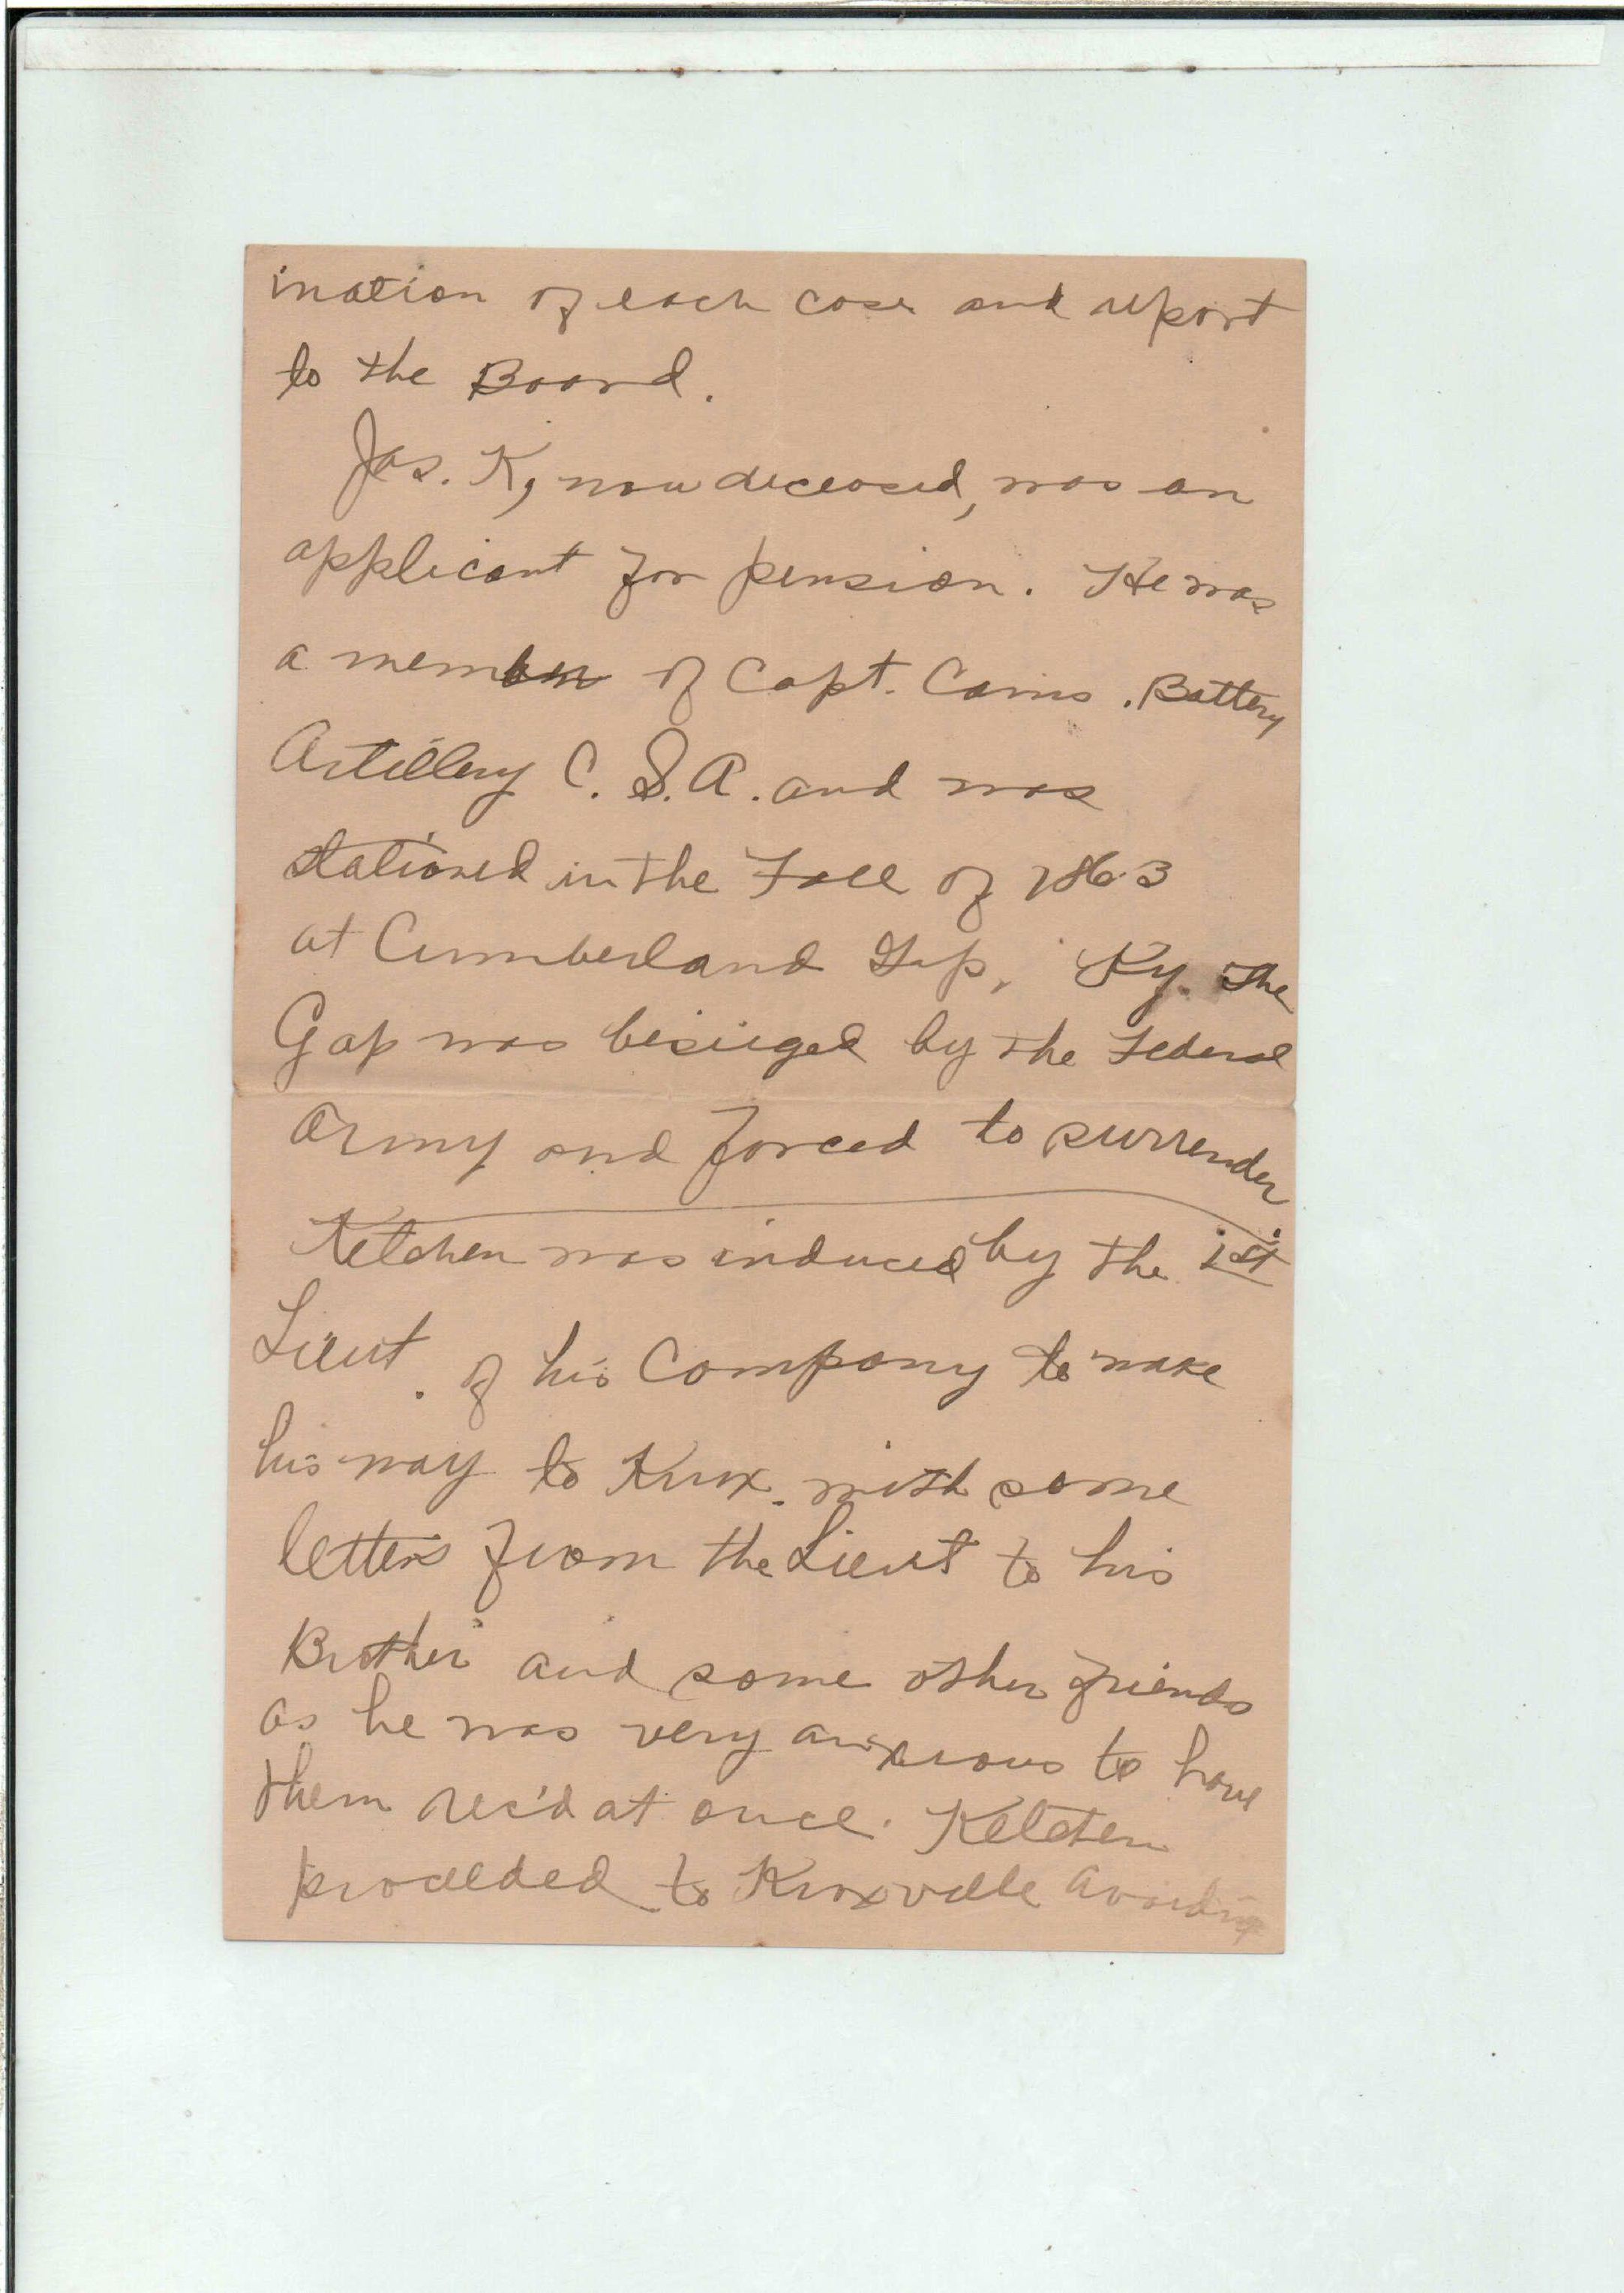 ination of each case and report
to the Board.
Jas. K, now deceased, was an
applicant for pension. He was
a member of Capt. Cains. Battery
Artillery C. S. A. and was
stationed in the Fall of 1863
at Cumberland Gap, Ky. The
Gap was besieged by the Federal
Army and forced to surrender
Ketchen was induced by the 1st
Lieut. of his Company to make
his way to Knox. with some
letters from the Lieut to his
Brother and some other friends
as he was very anxious to have
them rec'd at once. Ketchen
proceeded to Knoxville avoiding